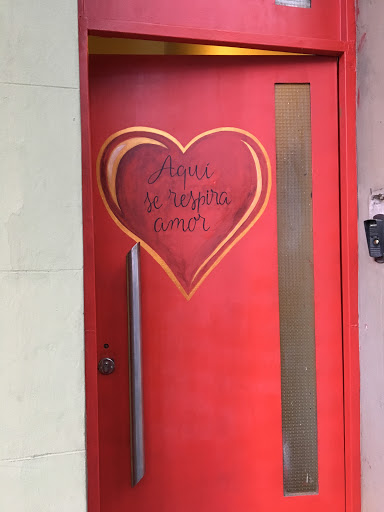 Aquí
se respira
amor